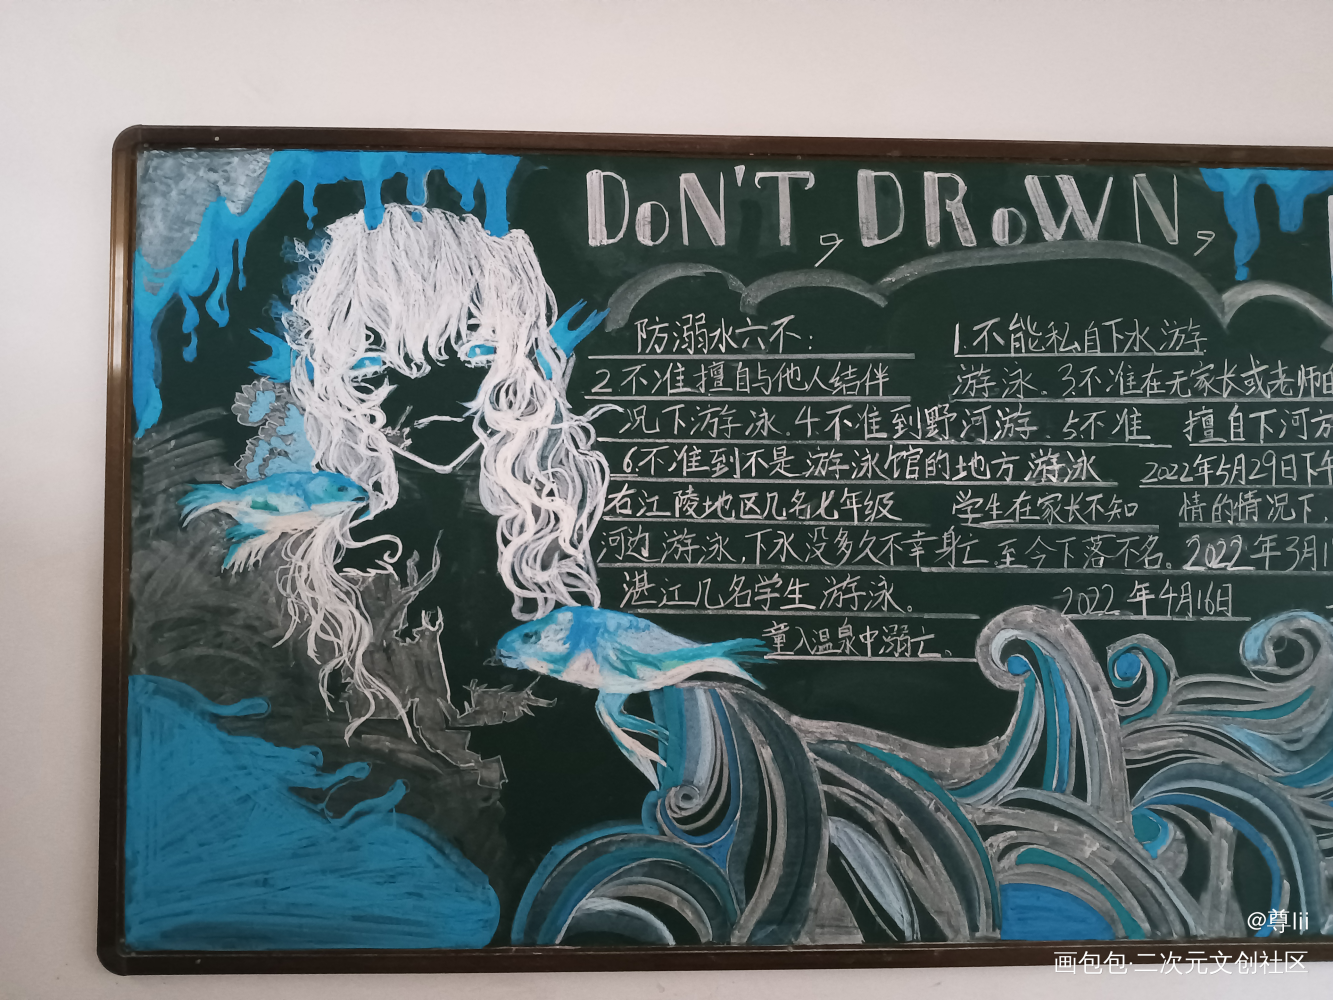 DoN'T, DRoWN,
防溺水六不: 1.不能私自下水游
2不准擅自与他人结伴 游泳.3不准在无家长或老师的
况下游泳.4.不准到野河游 5.不准 擅自下河方
6.不准到不是游泳馆的地方游泳 2022年5月29日下午
右江陵地区几名七年级 学生在家长不知 情的情况下,
河边游泳,下水没多久不幸身亡.至今下落不名。2022年3月1
湛江几名学生游泳。 2022年4月16日
童入温泉中溺亡。
@尊lii
画包包·二次元文创社区